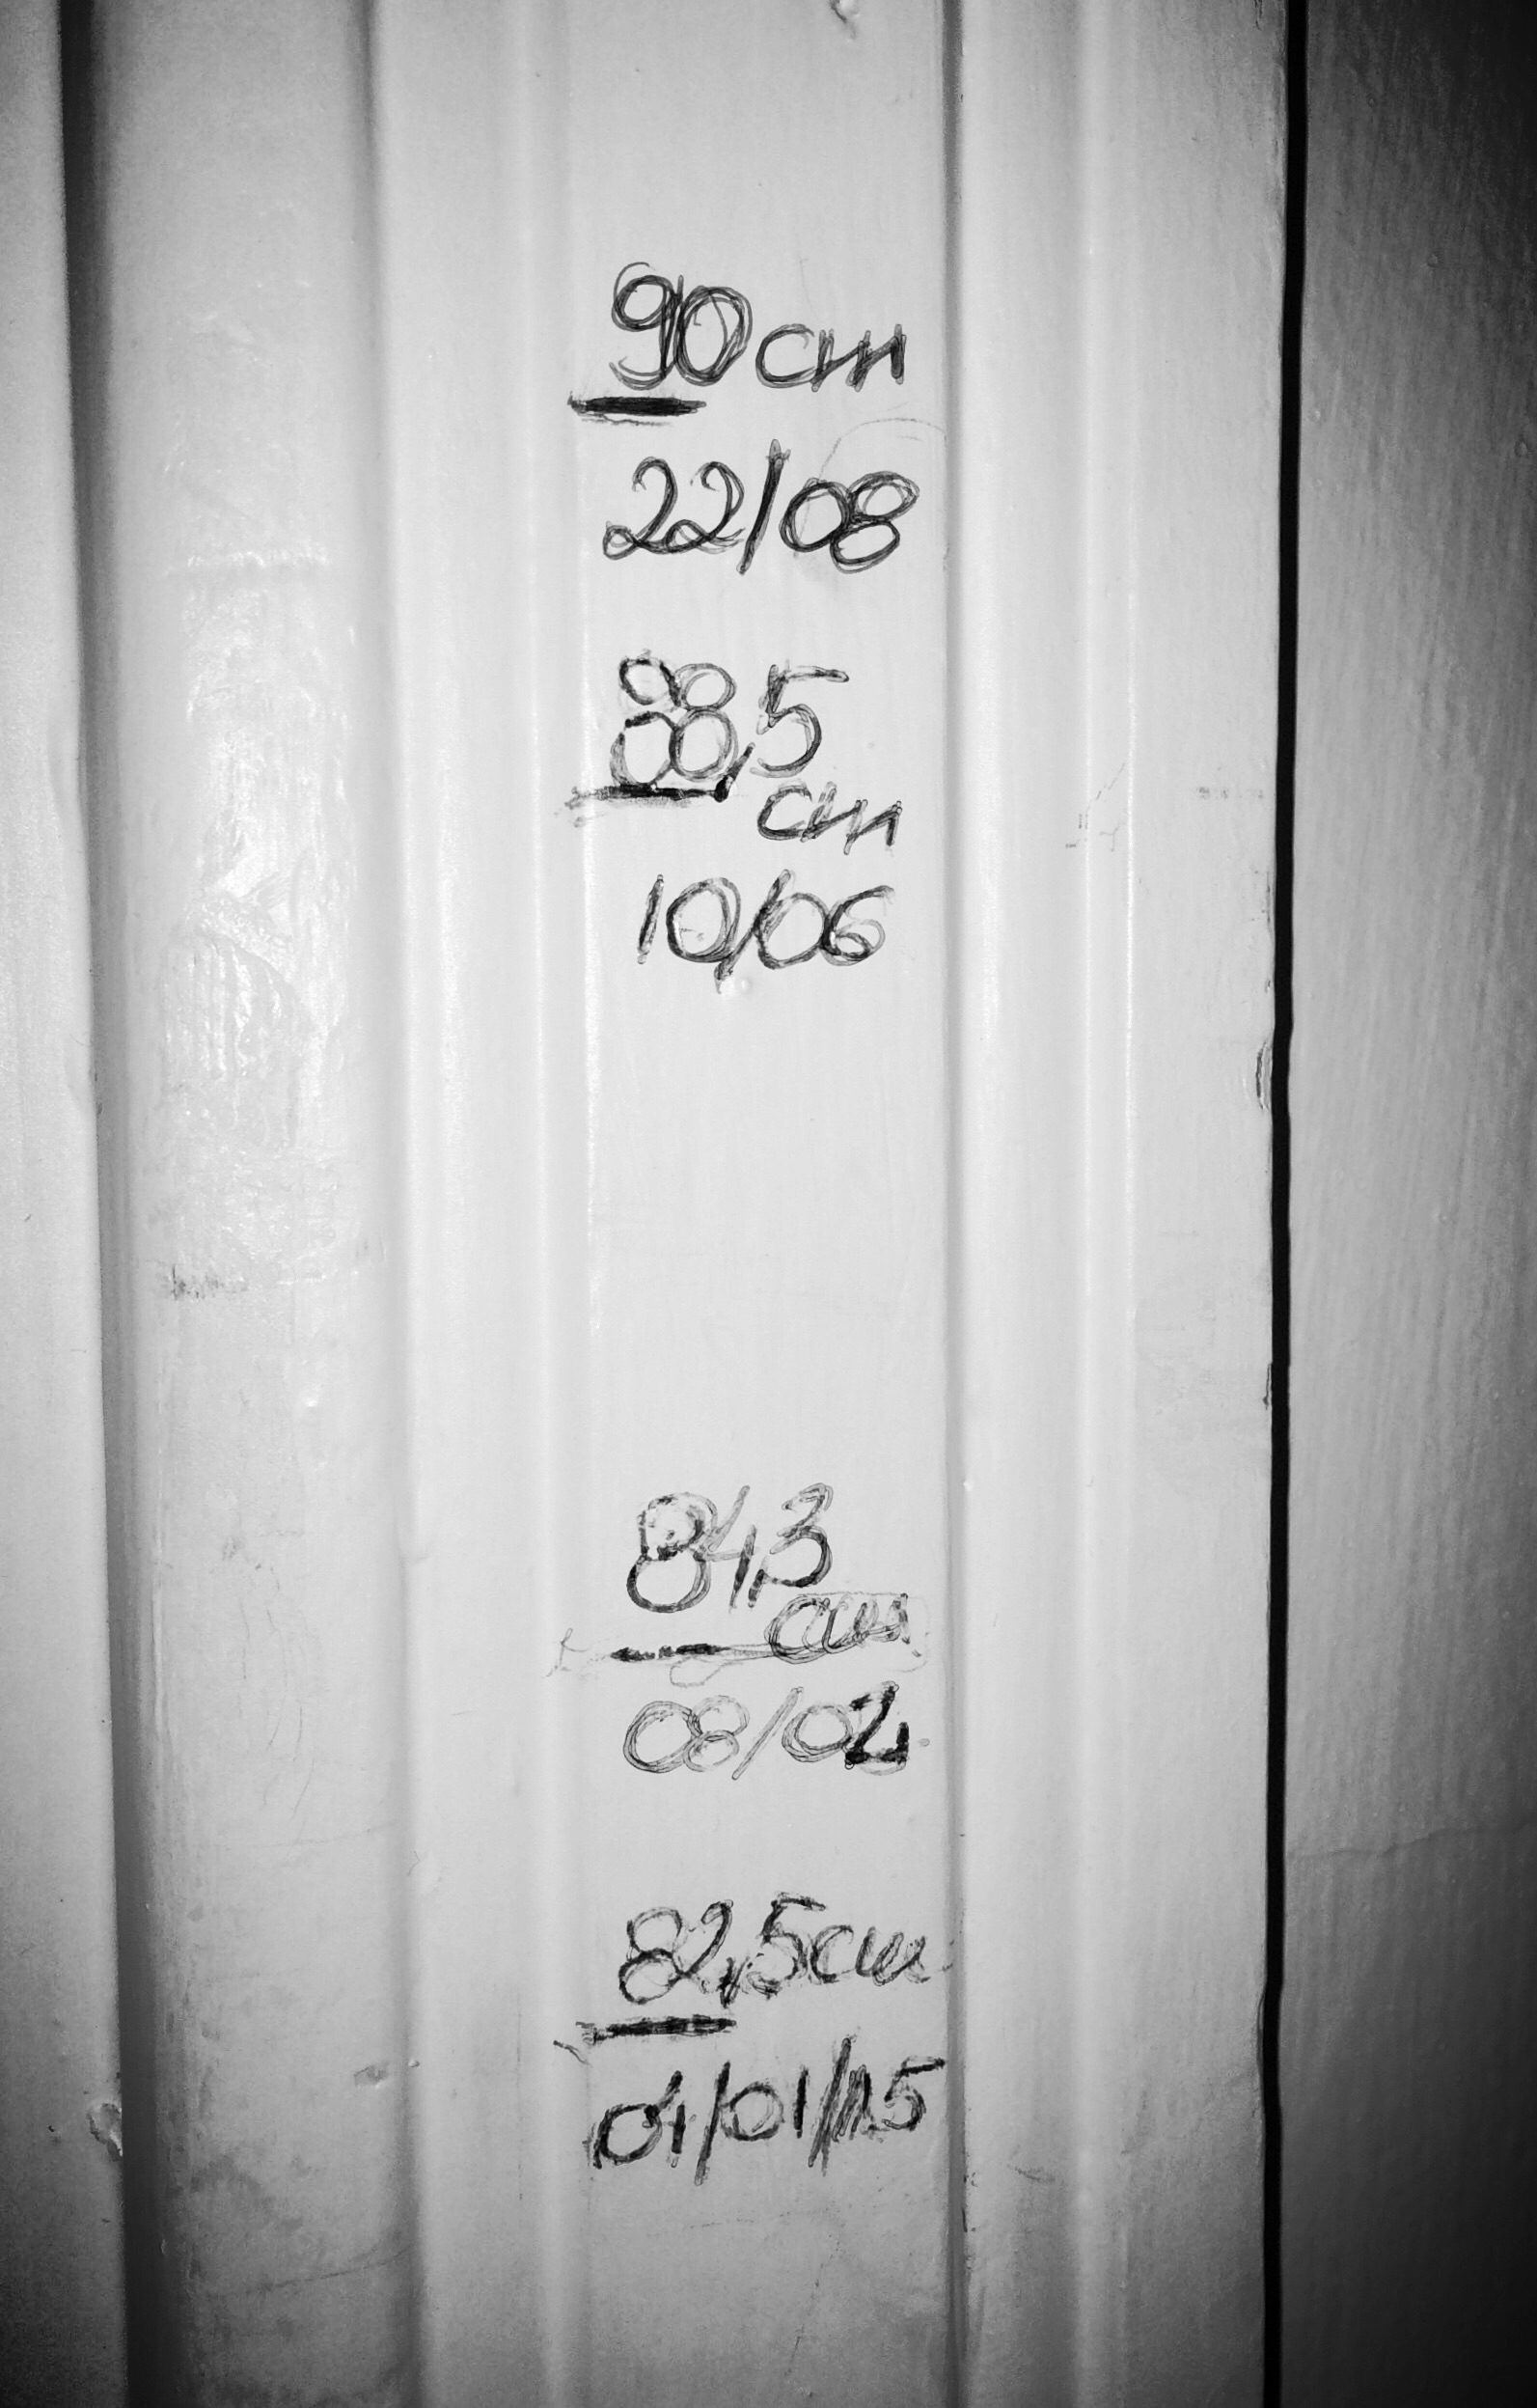 90cm
22/08
88,5
cm
10/06
84,3
cm
08/02
82,5cm
04/01/15